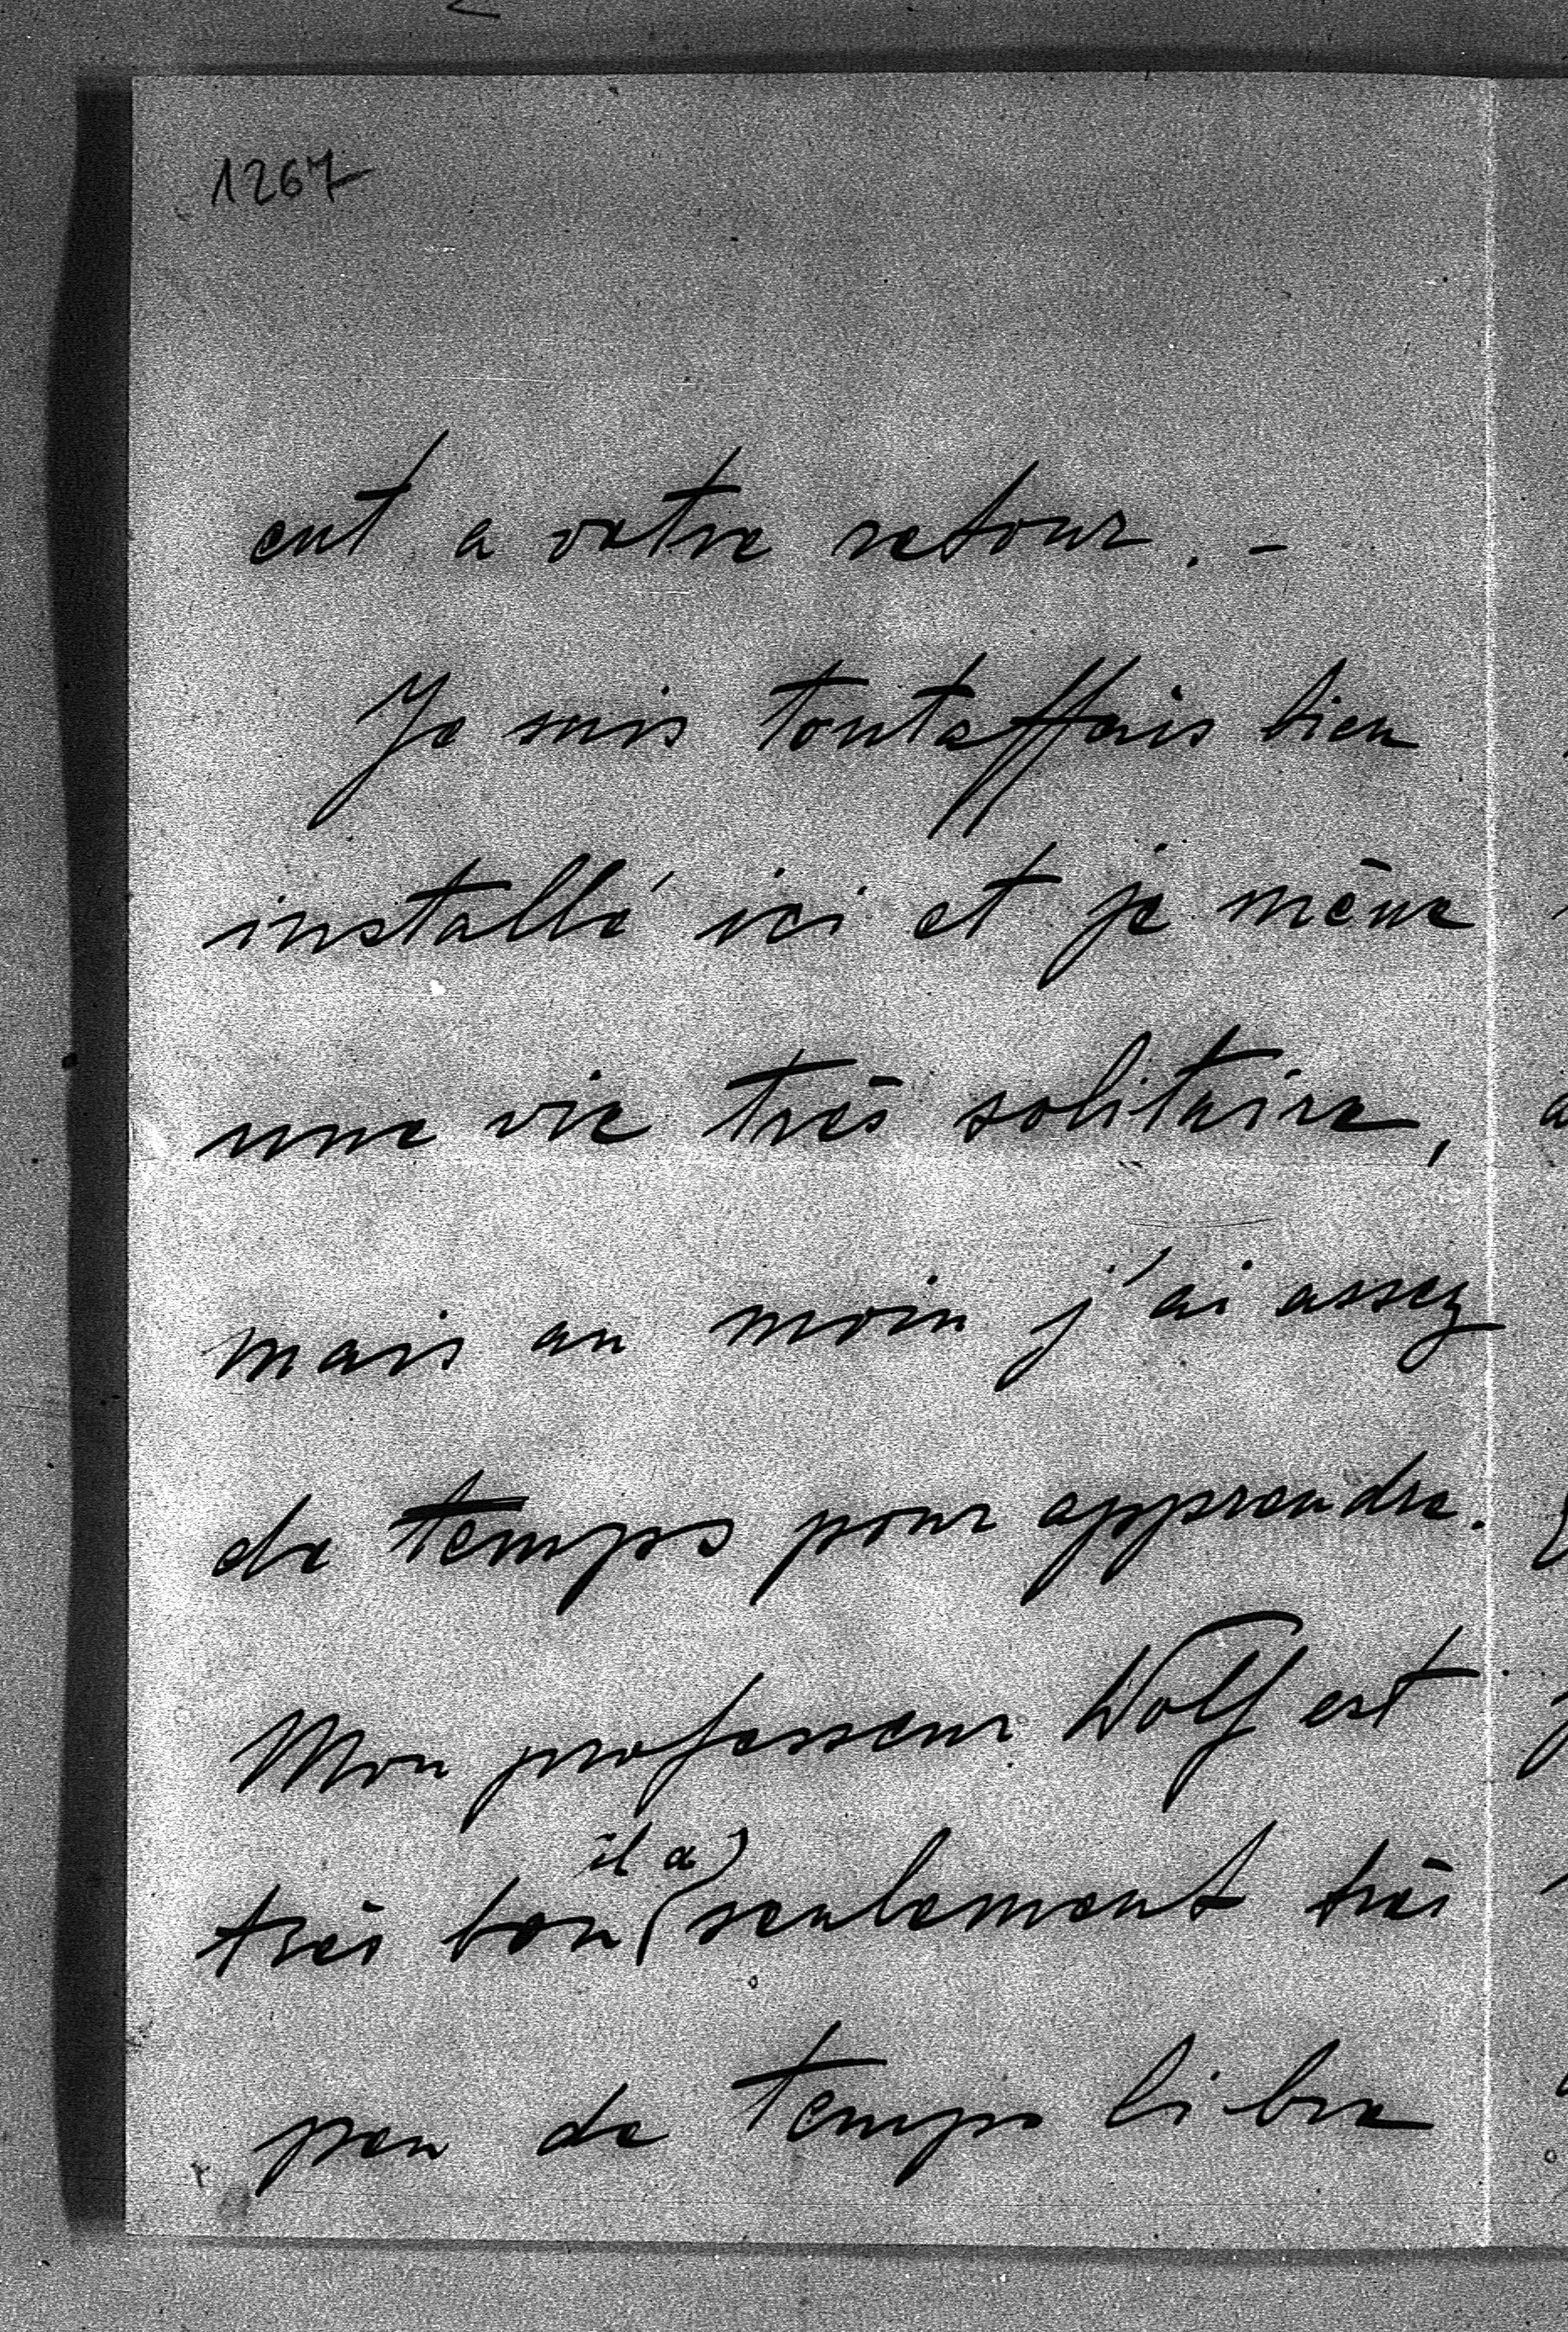 1267
ent a votre retour. -
Je suis toutaffais bien
installé ici et je mène
une vie très solitaire,
mais au moin j'ai assez
de temps pour apprendre.
Mon professeur Wolf est
il a)
très bon (seulement très
peu de temps libre